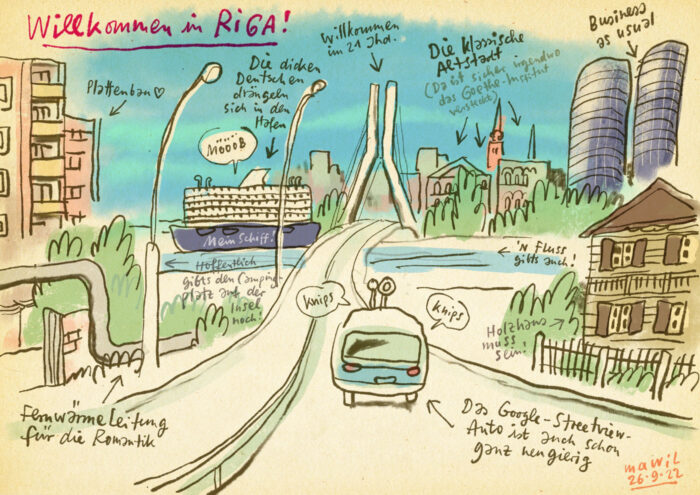 Willkommen in RiGA!
Plattenbau ♡
Die dicken
Deutschen
drängeln
sich in den
Hafen
MÖÖÖB
Mein Schiff!
Willkommen
im 21 Jhd.
Die klassische
Altstadt
(Da ist sicher irgendwo
das Goethe-Institut
versteckt)
Business
as usual
Hoffentlich
gibts den Camping-
platz auf der
Insel
noch!
'N Fluss
gibts auch!
Knips
Knips
Holzhaus
muss
sein!
Fernwärmeleitung
für die Romantik
Das Google-Streetview-
Auto ist auch schon
ganz neugierig
mawil
26.9.22